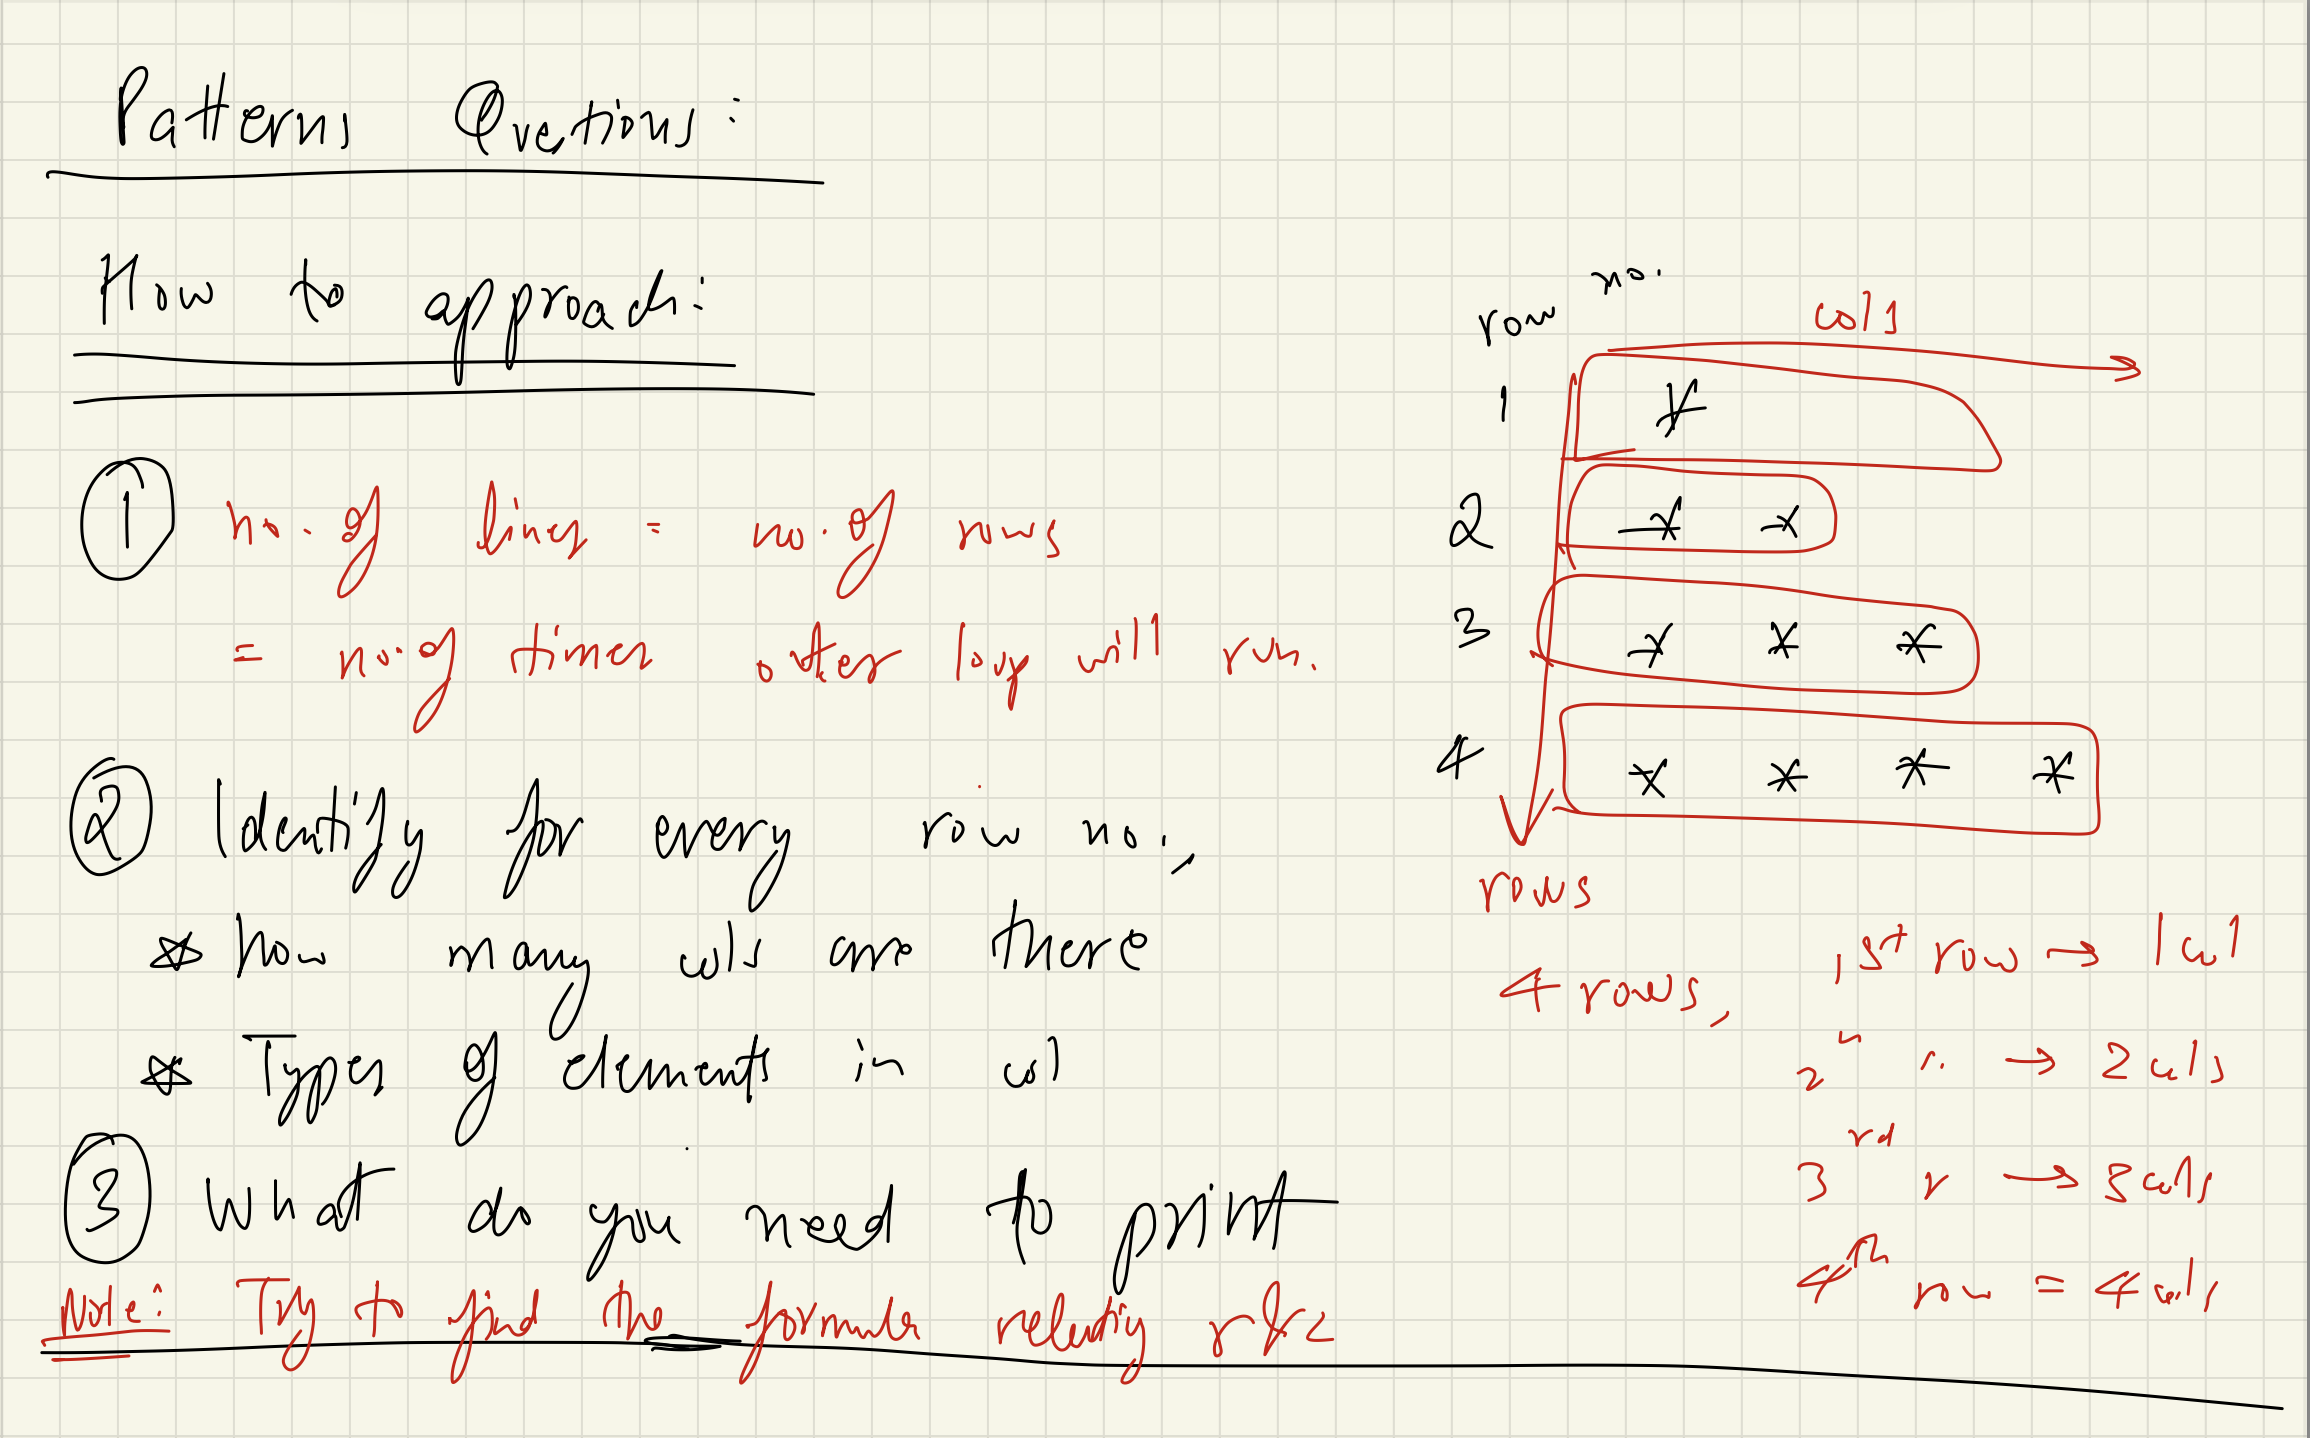 Patterns Quetions:
How to approach:
① no. of lines = no. of rows
= no. of times outer loop will run.
② Identify for every row no.,
* how many cols are there
* Types of elements in col
③ What do you need to print
Note: Try to find the formula relating r & c
row no.
cols
1 *
2 * *
3 * * *
4 * * * *
rows
4 rows,
1st row → 1 col
2n " → 2 cols
3rd r → 3 cols
4th row = 4 cols